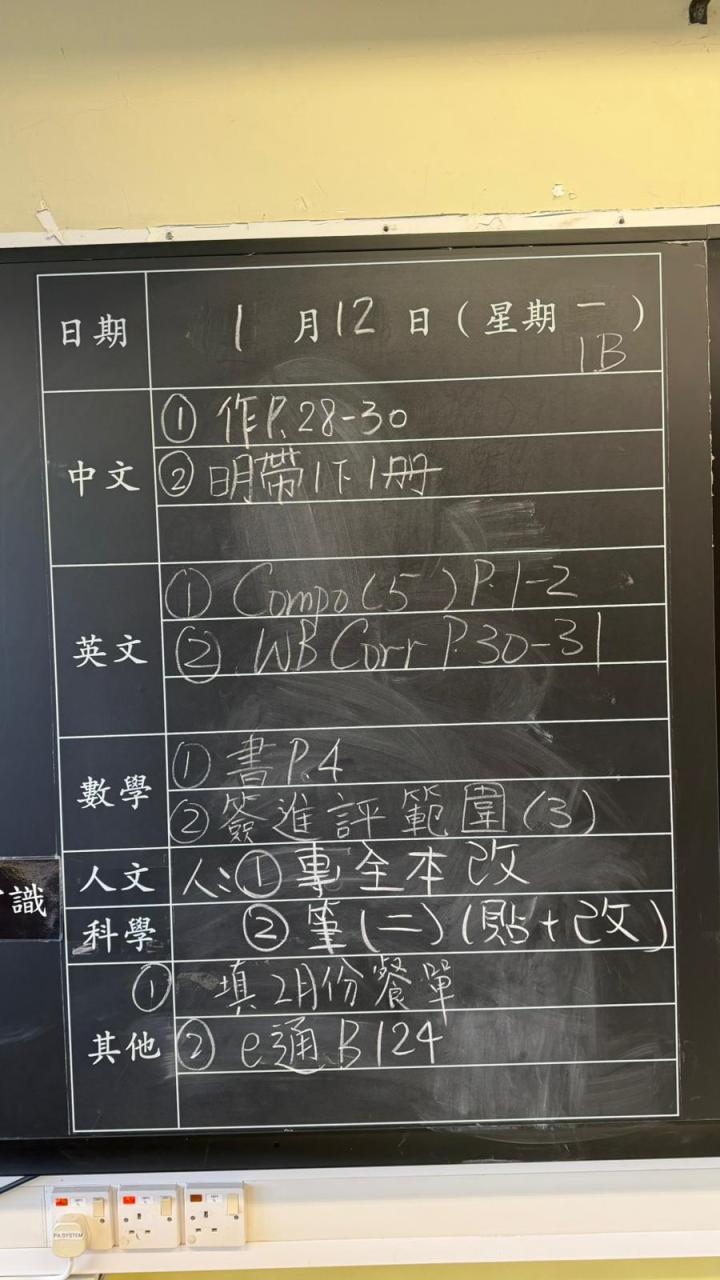 日期 1月12日(星期一)
1B
中文
① 作P.28-30
② 明帶1下1册
英文
① Compo(5) P.1-2
② WB Corr P.30-31
數學
① 書P.4
② 簽進評範圍(3)
人文 人:① 專全本改
科學 ② 筆(二)(貼+改)
其他
① 填2月份餐單
② e通B124
識
PA SYSTEM